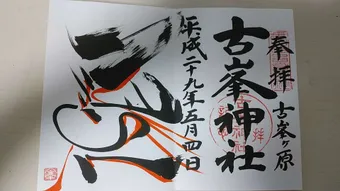 奉拝
古峯ヶ原
古峯神社
平成二十九年五月四日